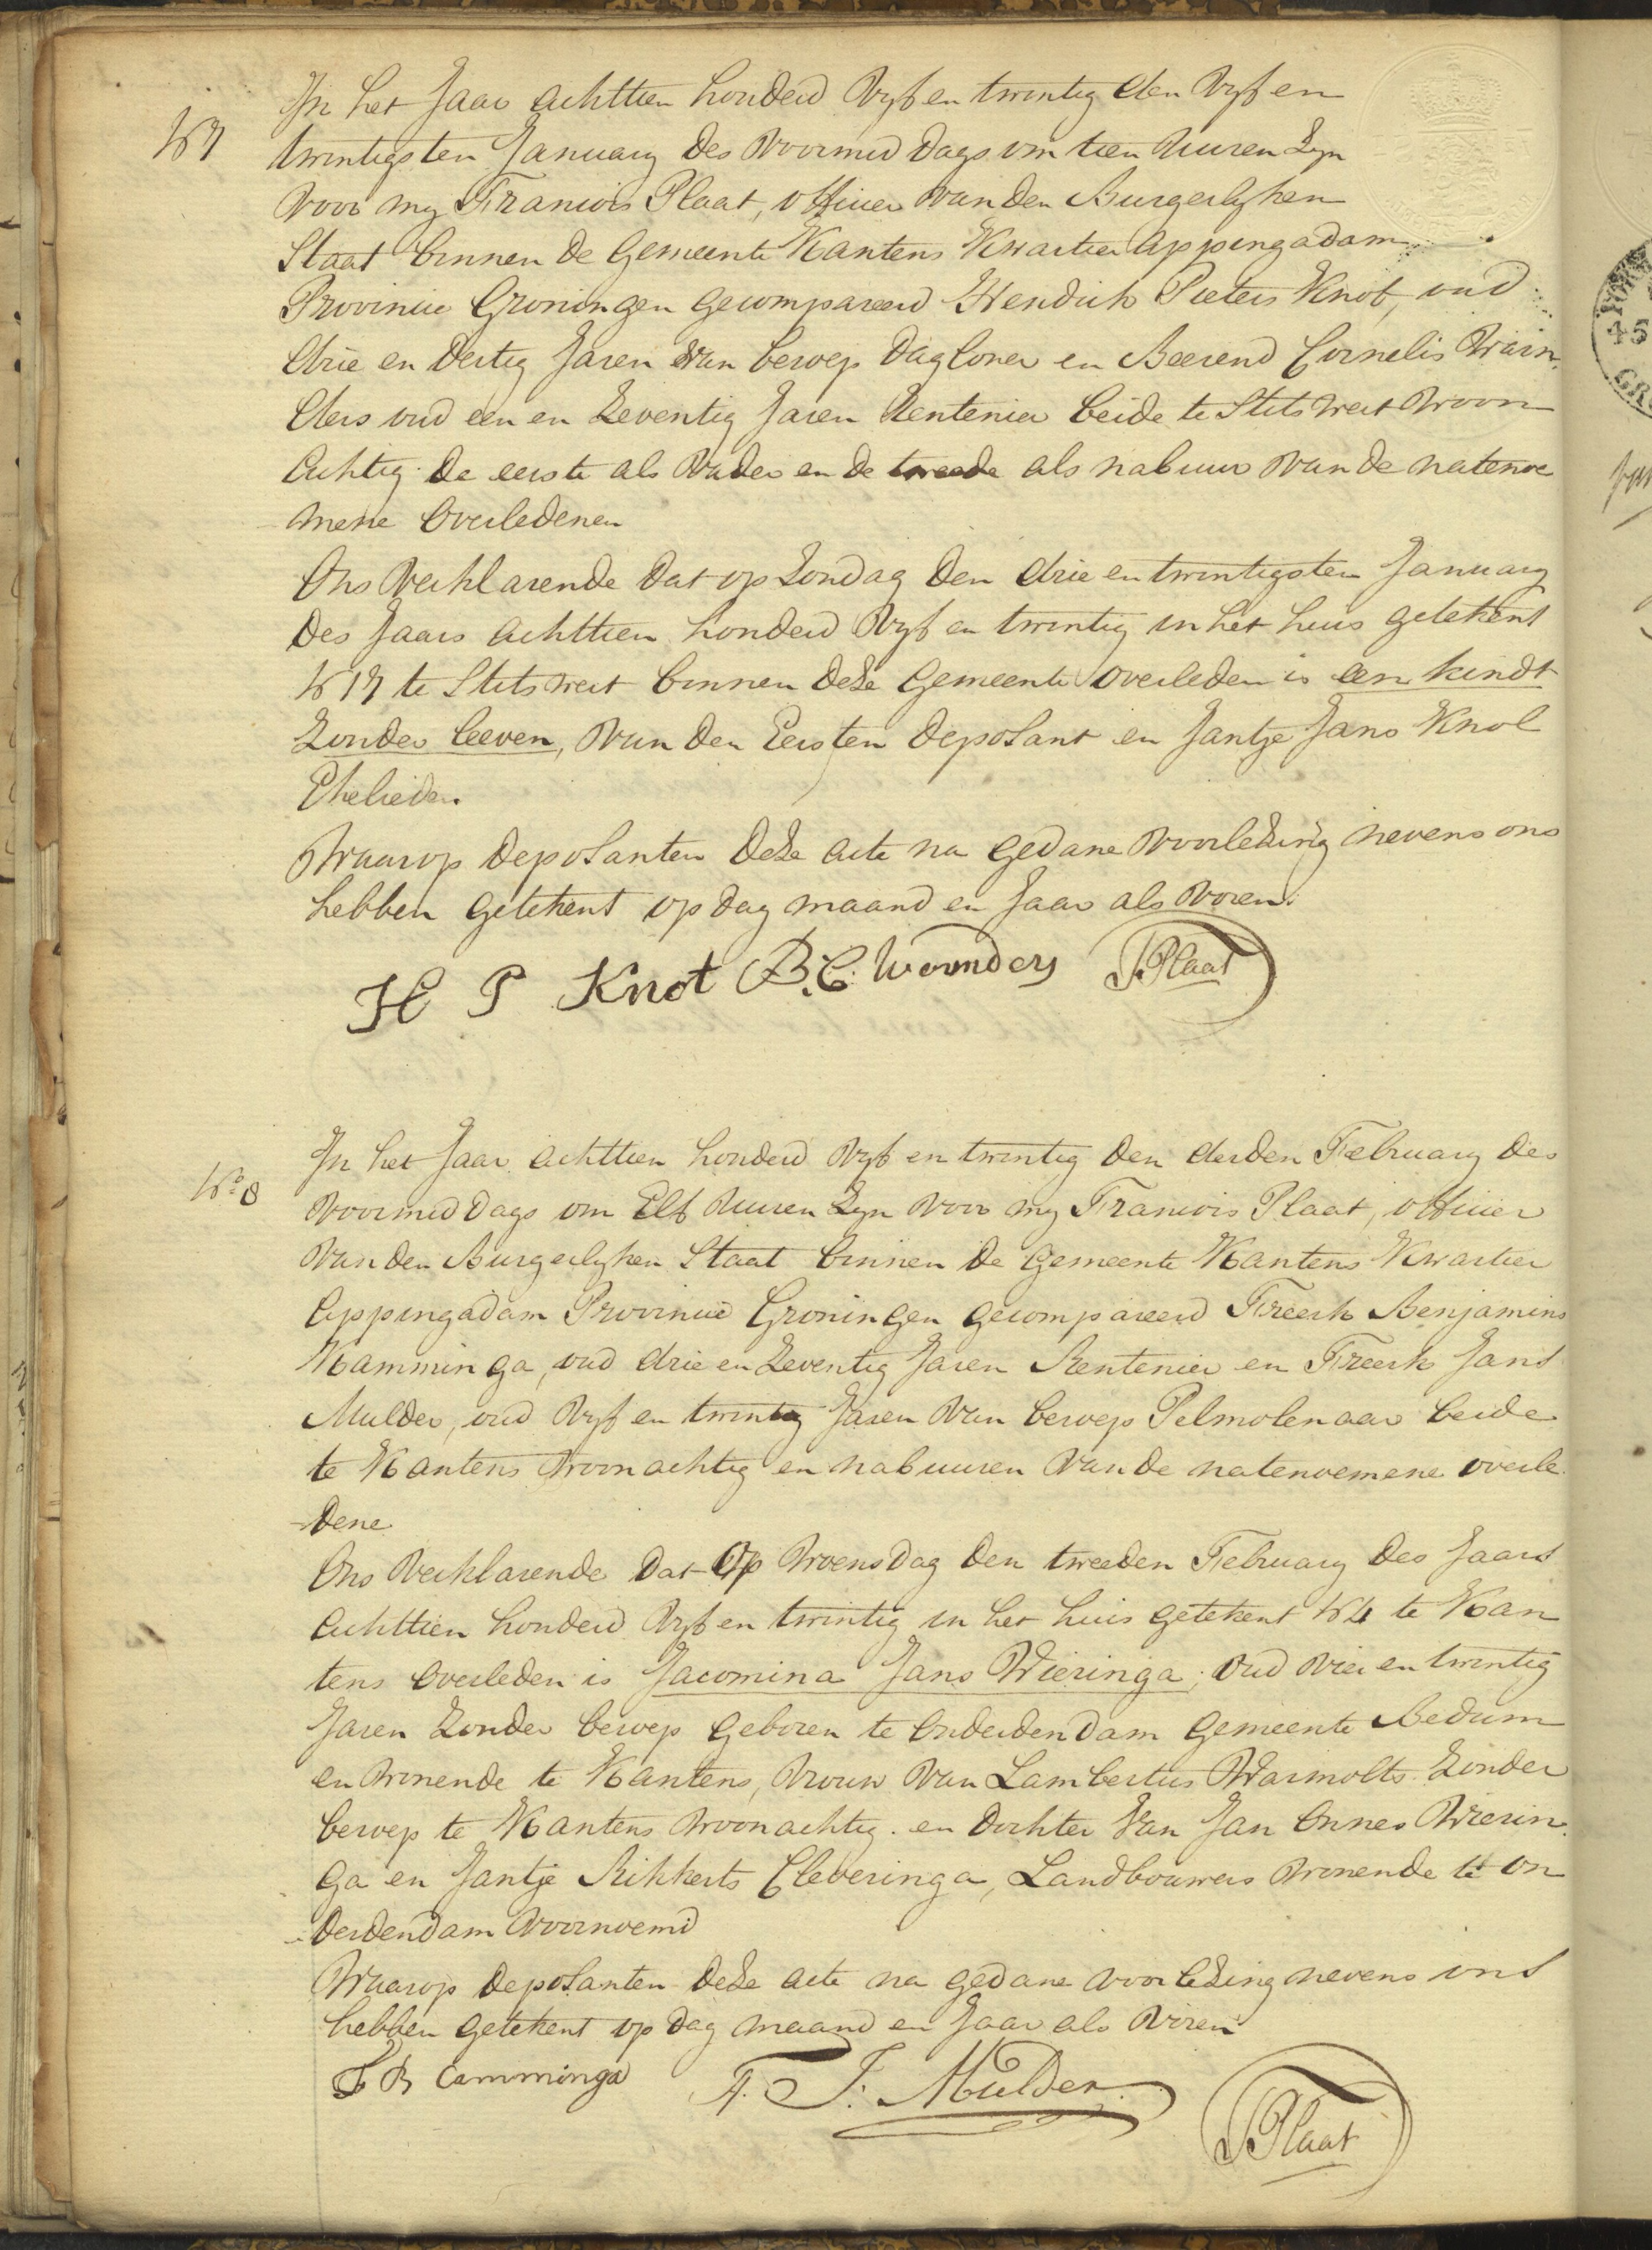 In het Jaar achttien honderd Vyf en twintig den Vyf en
N 7
twintigsten January des Voormid dags om tien Uuren Zyn
Voor my Francois Plaat, officier van den Burgerlyken
Staat binnen de Gemeente Kantens Kwartier Appingadam
Provincie Groningen gecompareerd Hendrik Pieters Knot, oud
drie en dertig Jaren van beroep dagloner en Beerend Cornelis Woin
ders oud een en Zeventig Jaren Rentenier beide te Stitswert woon
achtig de eerste als Vader en de tweede als nabuur van de natenoe
mene Overledenen
Ons Verklarende dat op Zondag den drie en twintigsten January
des Jaars achttien honderd Vyf en twintig in het huis getekent
N 17 te Stitswert binnen deze Gemeente overleden is een kindt
Zonder leeven, van den Eersten deposant en Jantje Jans Knol
Ehelieden
Waarop deposanten deze acte na gedane voorlezing nevens ons
hebben getekent op dag maand en Jaar als Voren.
H P Knot B. C. Woinders FPlaat
In het Jaar achttien honderd Vyf en twintig den derden February des
No 8
Voormid dags om Elf Uuren Zyn voor my Francois Plaat, officier
van den Burgerlyken Staat binnen de Gemeente Kantens Kwartier
Appingadam Provincie Groningen gecompareerd Freerk Benjamins
Kamminga, oud drie en Zeventig Jaren Rentenier en Freerk Jans
Mulder, oud Vyf en twintig Jaren van beroep Pelmolenaar beide
te Kantens woonachtig en nabuuren van de natenoemene overle
-dene
Ons Verklarende dat Op Woensdag den tweeden February des Jaars
achttien honderd Vyf en twintig in het huis getekent N 4 te Kan
tens Overleden is Jacomina Jans Wieringa, oud vier en twintig
Jaren Zonder beroep geboren te Onderdendam Gemeente Bedum
en wonende te Kantens, Vrouw van Lambertus Warmolts Zonder
beroep te Kantens woonachtig. en dochter van Jan Onnes Wierin
ga en Jantje Rikkerts Cleveringa, Landbouwers wonende te On
derdendam voornoemd
Waarop deposanten deze acte na gedane voorlezing nevens ons
hebben getekent op dag maand en Jaar als Voren
F B Camminga F. J. Mulder. FPlaat